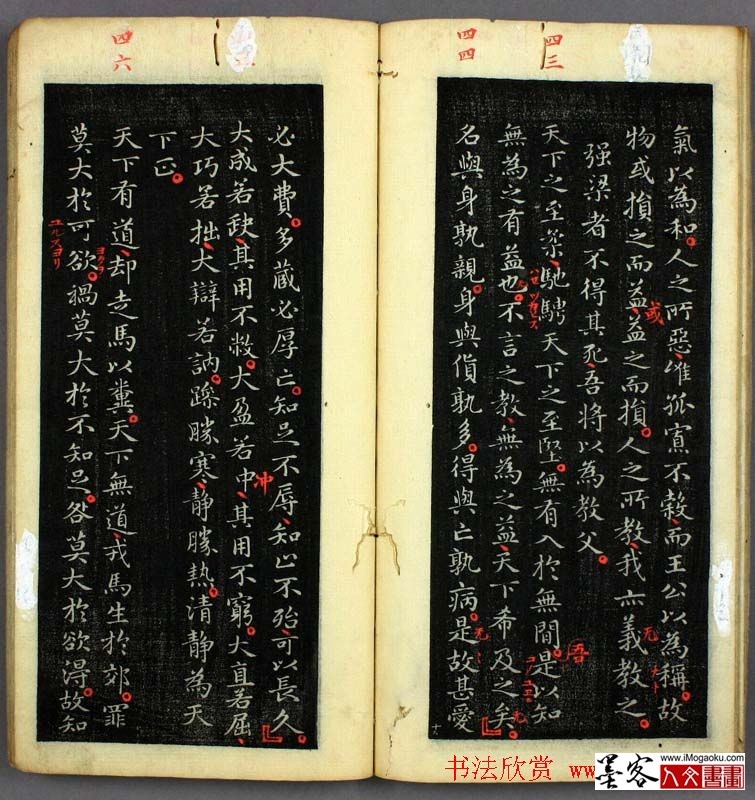 四三
四四
氣以為和。人之所惡、惟孤寡不穀、而王公以為稱。故
物或損之而益、益之而損。人之所教、我亦義教之。
或
强梁者不得其死、吾將以為教父。
天下之至柔、馳騁天下之至堅。無有入於無間。是以知
吾
無為之有益也。不言之教、無為之益、天下希及之矣。
名與身孰親。身與貨孰多。得與亡孰病。是故甚愛
四六
必大費。多藏必厚亡。知足不辱、知止不殆、可以長久。
大成若缺、其用不敝。大盈若中、其用不窮。大直若屈、
冲
大巧若拙、大辯若訥。躁勝寒、靜勝熱。清靜為天
下正。
天下有道、却走馬以糞。天下無道、戎馬生於郊。罪
莫大於可欲。禍莫大於不知足。咎莫大於欲得。故知
书法欣赏 www
墨客
www.iMogaoku.com
人文書畫